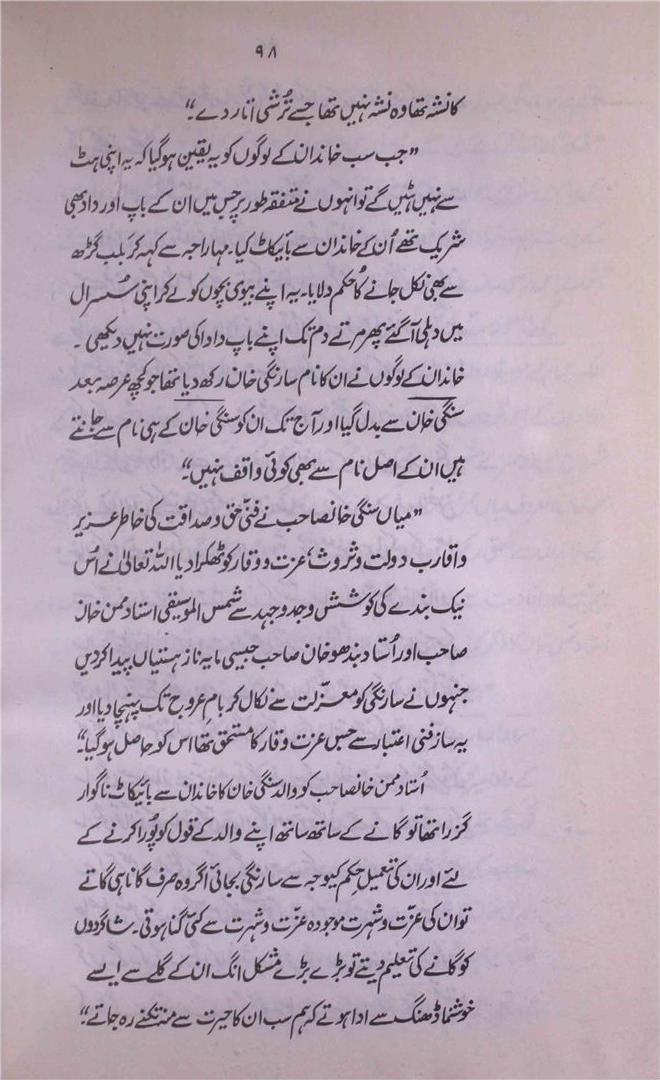 ۹۸
کا نشہ تھا وہ نشہ نہیں تھا جسے تُرشی اتار دے۔“
”جب سب خاندان کے لوگوں کو یہ یقین ہو گیا کہ یہ اپنی ہٹ
سے نہیں ہٹیں گے تو انہوں نے متفقہ طور پر جس میں ان کے باپ اور دادا بھی
شریک تھے اُن کے خاندان سے بائیکاٹ کیا۔ مہاراجہ سے کہہ کر بلب گڑھ
سے بھی نکل جانے کا حکم دلایا۔ یہ اپنے بیوی بچوں کو لے کر اپنی سُسرال
میں دہلی آ گئے پھر مرتے دم تک اپنے باپ دادا کی صورت نہیں دیکھی۔
خاندان کے لوگوں نے ان کا نام سارنگی خان رکھ دیا تھا جو کچھ عرصہ بعد
سنگی خان سے بدل گیا اور آج تک ان کو سنگی خان کے ہی نام سے جانتے
ہیں ان کے اصل نام سے بھی کوئی واقف نہیں۔“
”میاں سنگی خانصاحب نے فنی حق و صداقت کی خاطر عزیز
و اقارب دولت و ثروت، عزت و وقار کو ٹھکرا دیا اللہ تعالیٰ نے اُس
نیک بندے کی کوشش و جد و جہد سے شمس الموسیقی استاد ممن خان
صاحب اور اُستاد بندھو خان صاحب جیسی مایہ ناز ہستیاں پیدا کر دیں
جنہوں نے سارنگی کو معزلت سے نکال کر بام عروج تک پہنچا دیا اور
یہ ساز فنی اعتبار سے جس عزت وقار کا مستحق تھا اس کو حاصل ہو گیا۔“
اُستاد ممن خانصاحب کو والد سنگی خان کا خاندان سے بائیکاٹ ناگوار
گزرا تھا تو گانے کے ساتھ ساتھ اپنے والد کے قول کو پُورا کرنے کے
لئے اور ان کی تعمیل حکم کیوجہ سے سارنگی بجائی اگر وہ صرف گانا ہی گاتے
تو ان کی عزّت و شہرت موجودہ عزّت و شہرت سے کئی گنا ہوتی۔ شاگردوں
کو گانے کی تعلیم دیتے تو بڑے بڑے مشکل انگ ان کے گلے سے ایسے
خوشنما ڈھنگ سے ادا ہوتے کہ ہم سب ان کا حیرت سے منہ تکتے رہ جاتے۔“